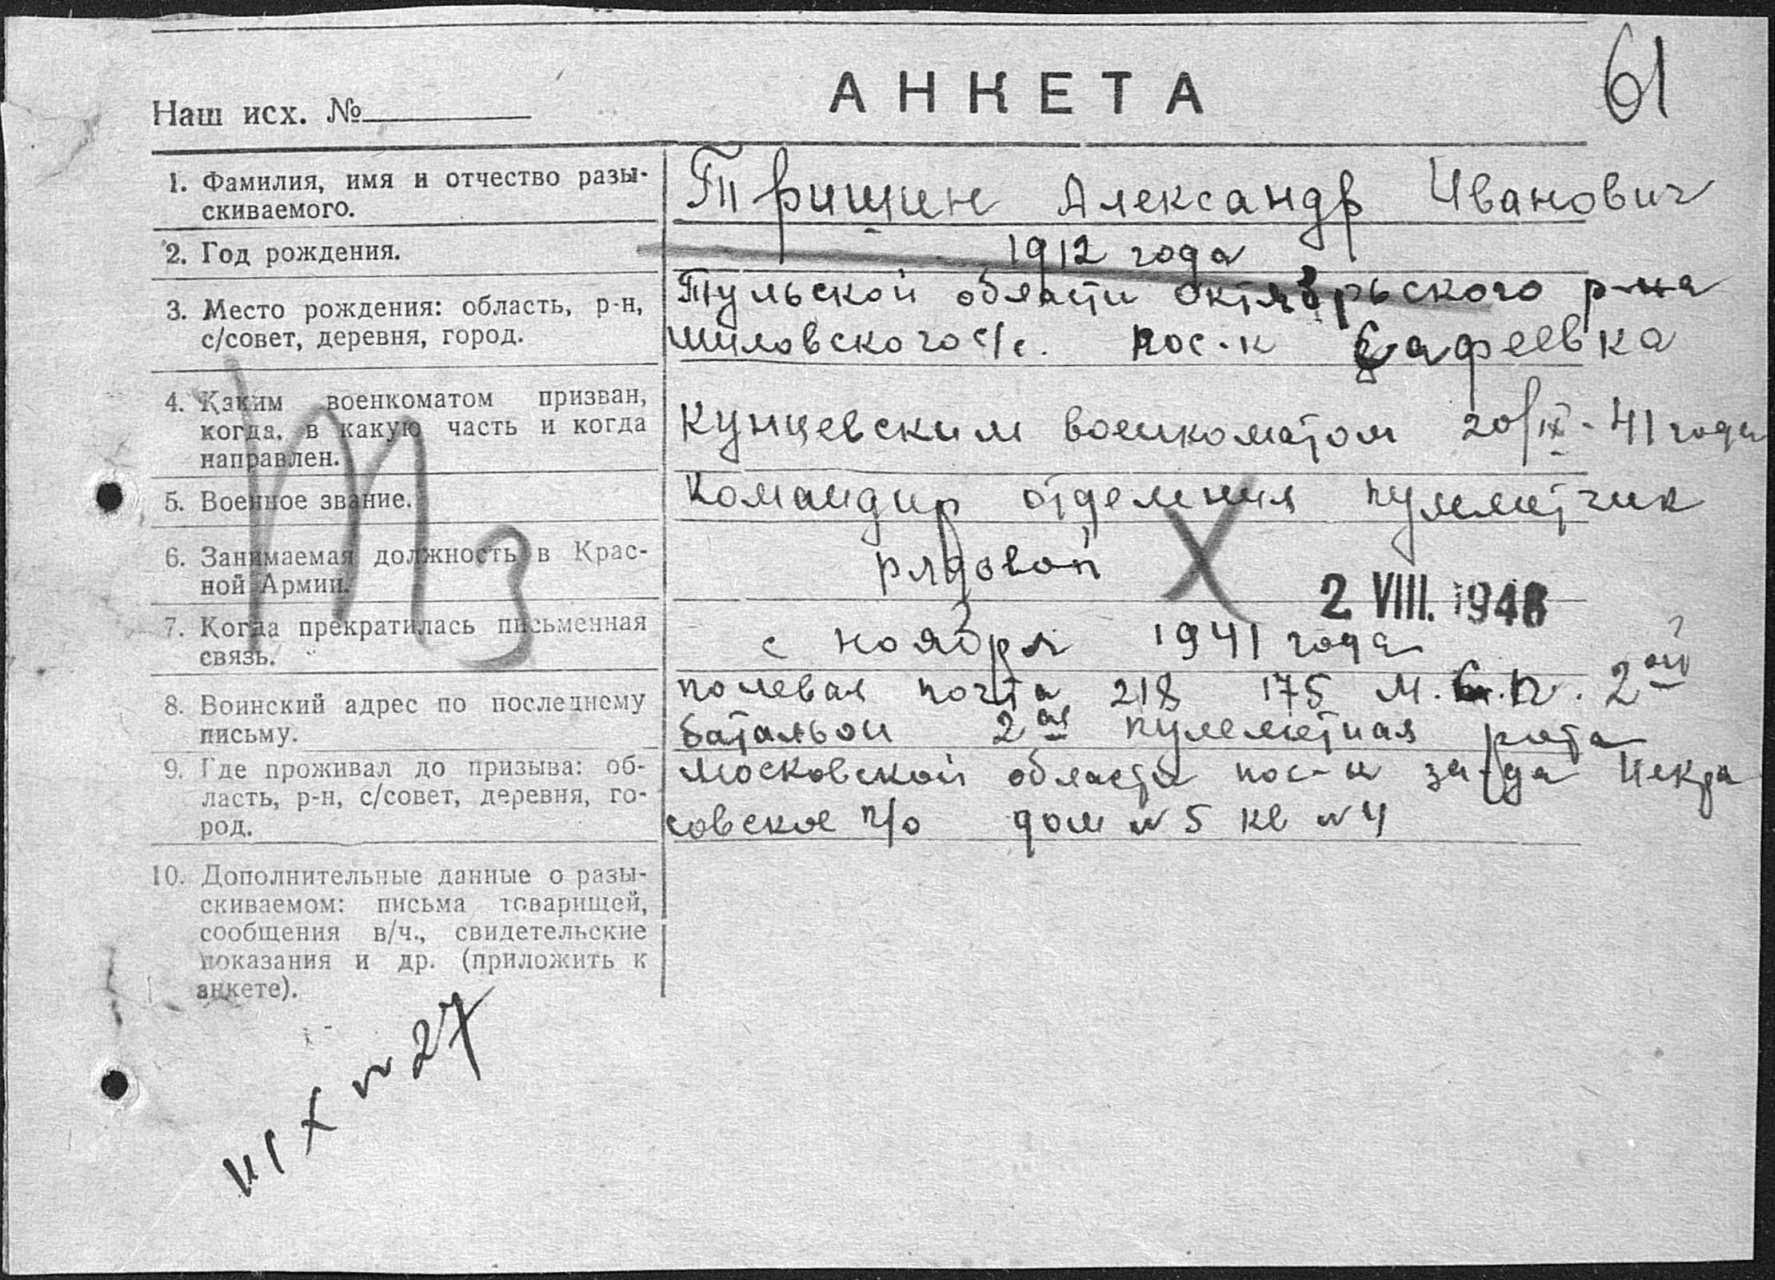 61
АНКЕТА
Наш исх. №
1. Фамилия, имя и отчество разы-
скиваемого.
Тришин Александр Иванович
2. Год рождения.
1912 года
3. Место рождения: область, р-н,
с/совет, деревня, город.
Тульской области октябрьского р-на
шиловского с/с. пос-к Сафеевка
4. Каким военкоматом призван,
когда, в какую часть и когда
направлен.
Кунцевским военкоматом 20/IX-41 года
5. Военное звание.
Командир отделения пулеметчик
6. Занимаемая должность в Крас-
ной Армии.
рядовой
2 VIII. 1948
7. Когда прекратилась письменная
связь.
с ноября 1941 года
8. Воинский адрес по последнему
письму.
полевая почта 218 175 М.С.П. 2ой
батальон 2ая пулеметная рота
9. Где проживал до призыва: об-
ласть, р-н, с/совет, деревня, го-
род.
Московской области пос-к за-да Некра
совское п/о дом №5 кв №4
10. Дополнительные данные о разы-
скиваемом: письма товарищей,
сообщения в/ч., свидетельские
показания и др. (приложить к
анкете).
№ 27